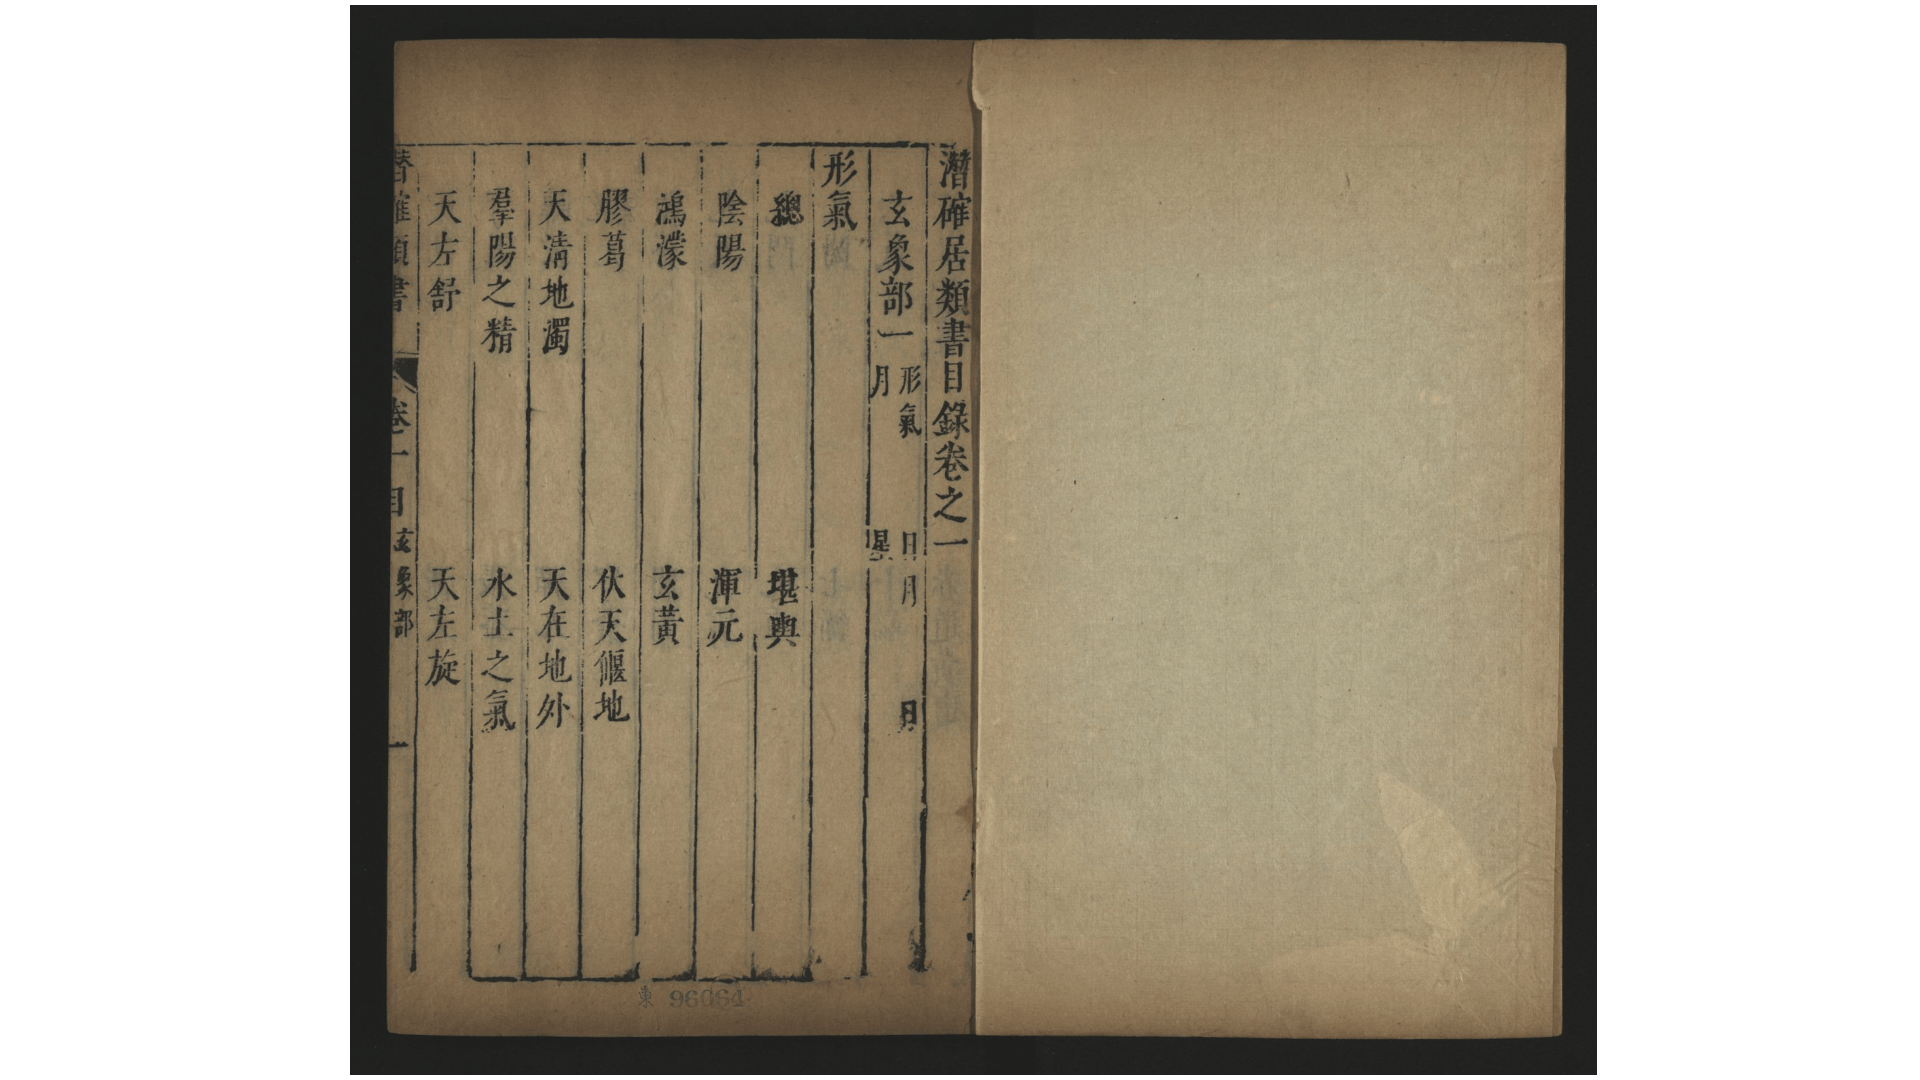 潛確居類書目錄卷之一
玄象部一 形氣 日月 日 月 星
形氣
總 堪輿
陰陽 渾元
鴻濛 玄黃
膠葛 伏天偃地
天清地濁 天在地外
羣陽之精 水土之氣
天左舒 天左旋
潛確類書 卷一 目 玄象部 一
東 96064